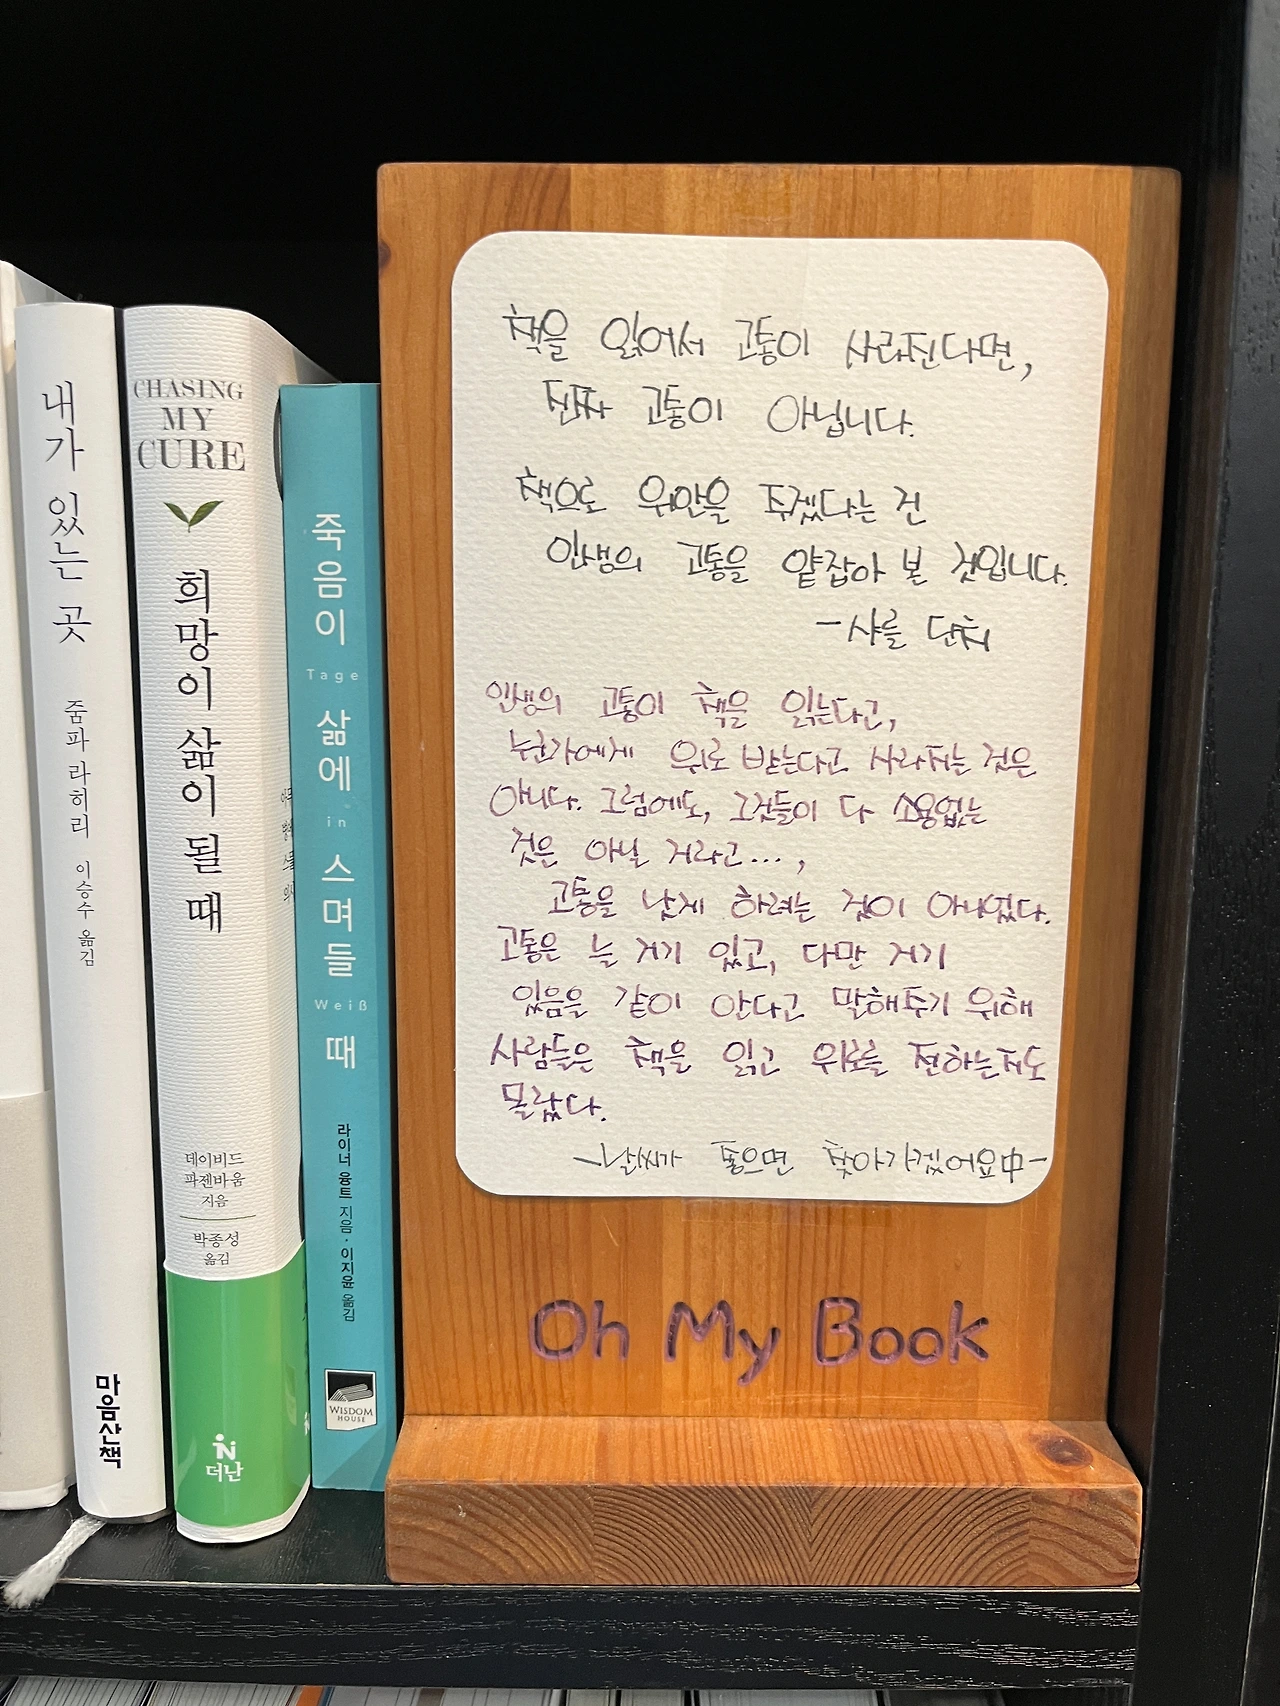 내가 있는 곳
줌파 라히리 이승수 옮김
마음산책
CHASING
MY
CURE
희망이 삶이 될 때
데이비드
파젠바움
지음
박종성
옮김
더난
죽음이
Tage
삶에
in
스며들
Weiß
때
라이너 융트 지음·이지윤 옮김
WISDOM
HOUSE
책을 읽어서 고통이 사라진다면,
진짜 고통이 아닙니다.
책으로 위안을 주겠다는 건
인생의 고통을 얕잡아 본 것입니다.
-샤를 단치
인생의 고통이 책을 읽는다고,
누군가에게 위로 받는다고 사라지는 것은
아니다. 그럼에도, 그것들이 다 소용없는
것은 아닐 거라고...,
고통을 낫게 하려는 것이 아니었다.
고통은 늘 거기 있고, 다만 거기
있음을 같이 안다고 말해주기 위해
사람들은 책을 읽고 위로를 전하는지도
몰랐다.
-날씨가 좋으면 찾아가겠어요中-
Oh My Book